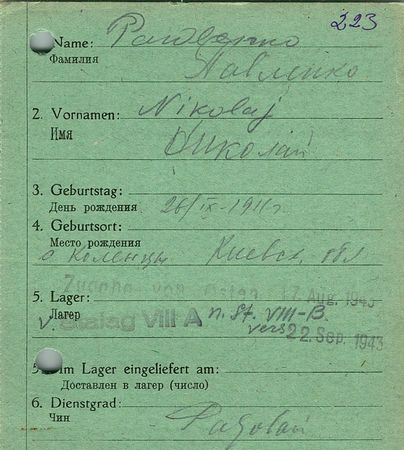 223
Name:
Фамилия
Павленко
2. Vornamen: Nikolaj
Имя Николай
3. Geburtstag:
День рождения 26/IX-1911г
4. Geburtsort:
Место рождения
с Коленцы Киевск. обл
Zugang von Osten 17. Aug. 1943
5. Lager:
Лагерь v. Stalag VIII A n. St. VIII-B.
vers 22. Sep. 1943
Im Lager eingeliefert am:
Доставлен в лагерь (число)
6. Dienstgrad:
Чин Рядовой